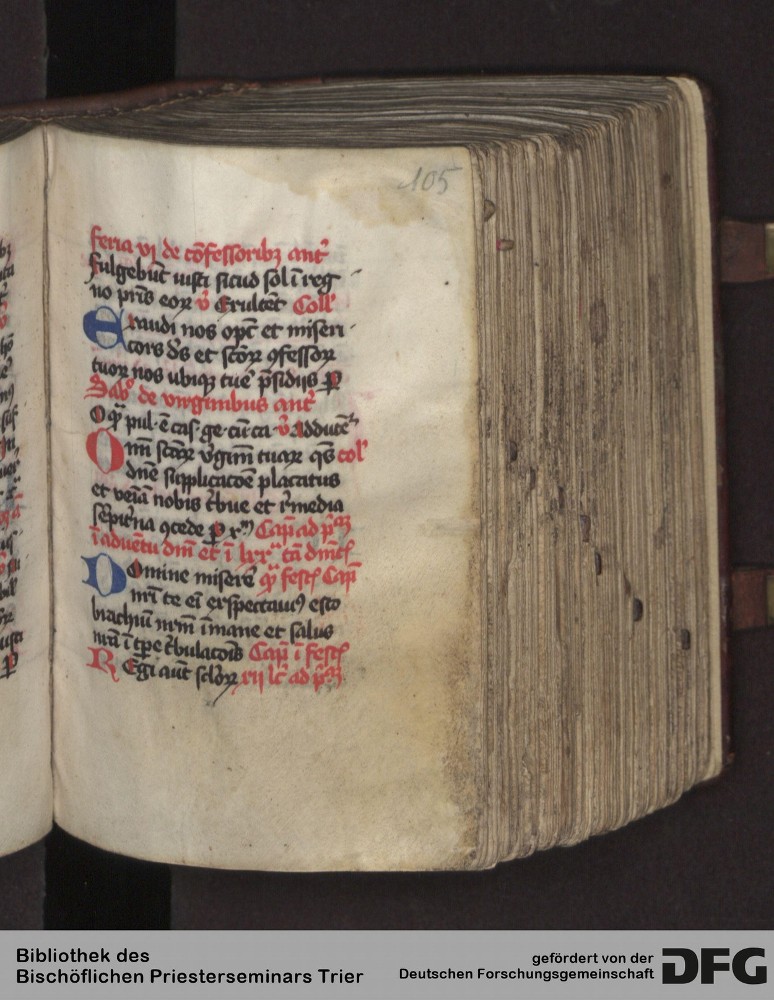 105
feria vi de cōfessoribꝫ antᷣ
fulgebūt iusti sicud sol ī reg
no pris̄ eoꝝ v̾ Exultēt Coll'
Exaudi nos opc̄ et miseri
cors ds̄ et scōꝝ ꝯfessoꝝ
tuoꝝ nos ubiqꝫ tue p̄sidijs ꝑ
Sabᵒ de virginibus antᷣ
O qᷓ pul ē cas ge cū ca v̾ Adducēt
Om̄ scāꝝ vgīm tuaꝝ qs̄ col'
dn̄e supplicacōe placatus
et veīa nobis tͥbue et rͬmedia
sēpit̾na ꝯcede ꝑ xᵐ Cap̄ ad pᷓᷓ
ī aduētu dn̄i et ī lxxᵃ
Domine miserē qᷓ fest Cap̄
nrī te eī exspectauiꝰ esto
brachiū nrm̄ ī mane et salus
nrā ī tp̄e tͥbulacōis Cap̄ ī fest
Regi aūt sclōꝝ xij lc̄ ad pᷓᷓ
Bibliothek des
Bischöflichen Priesterseminars Trier
gefördert von der
Deutschen Forschungsgemeinschaft
DFG